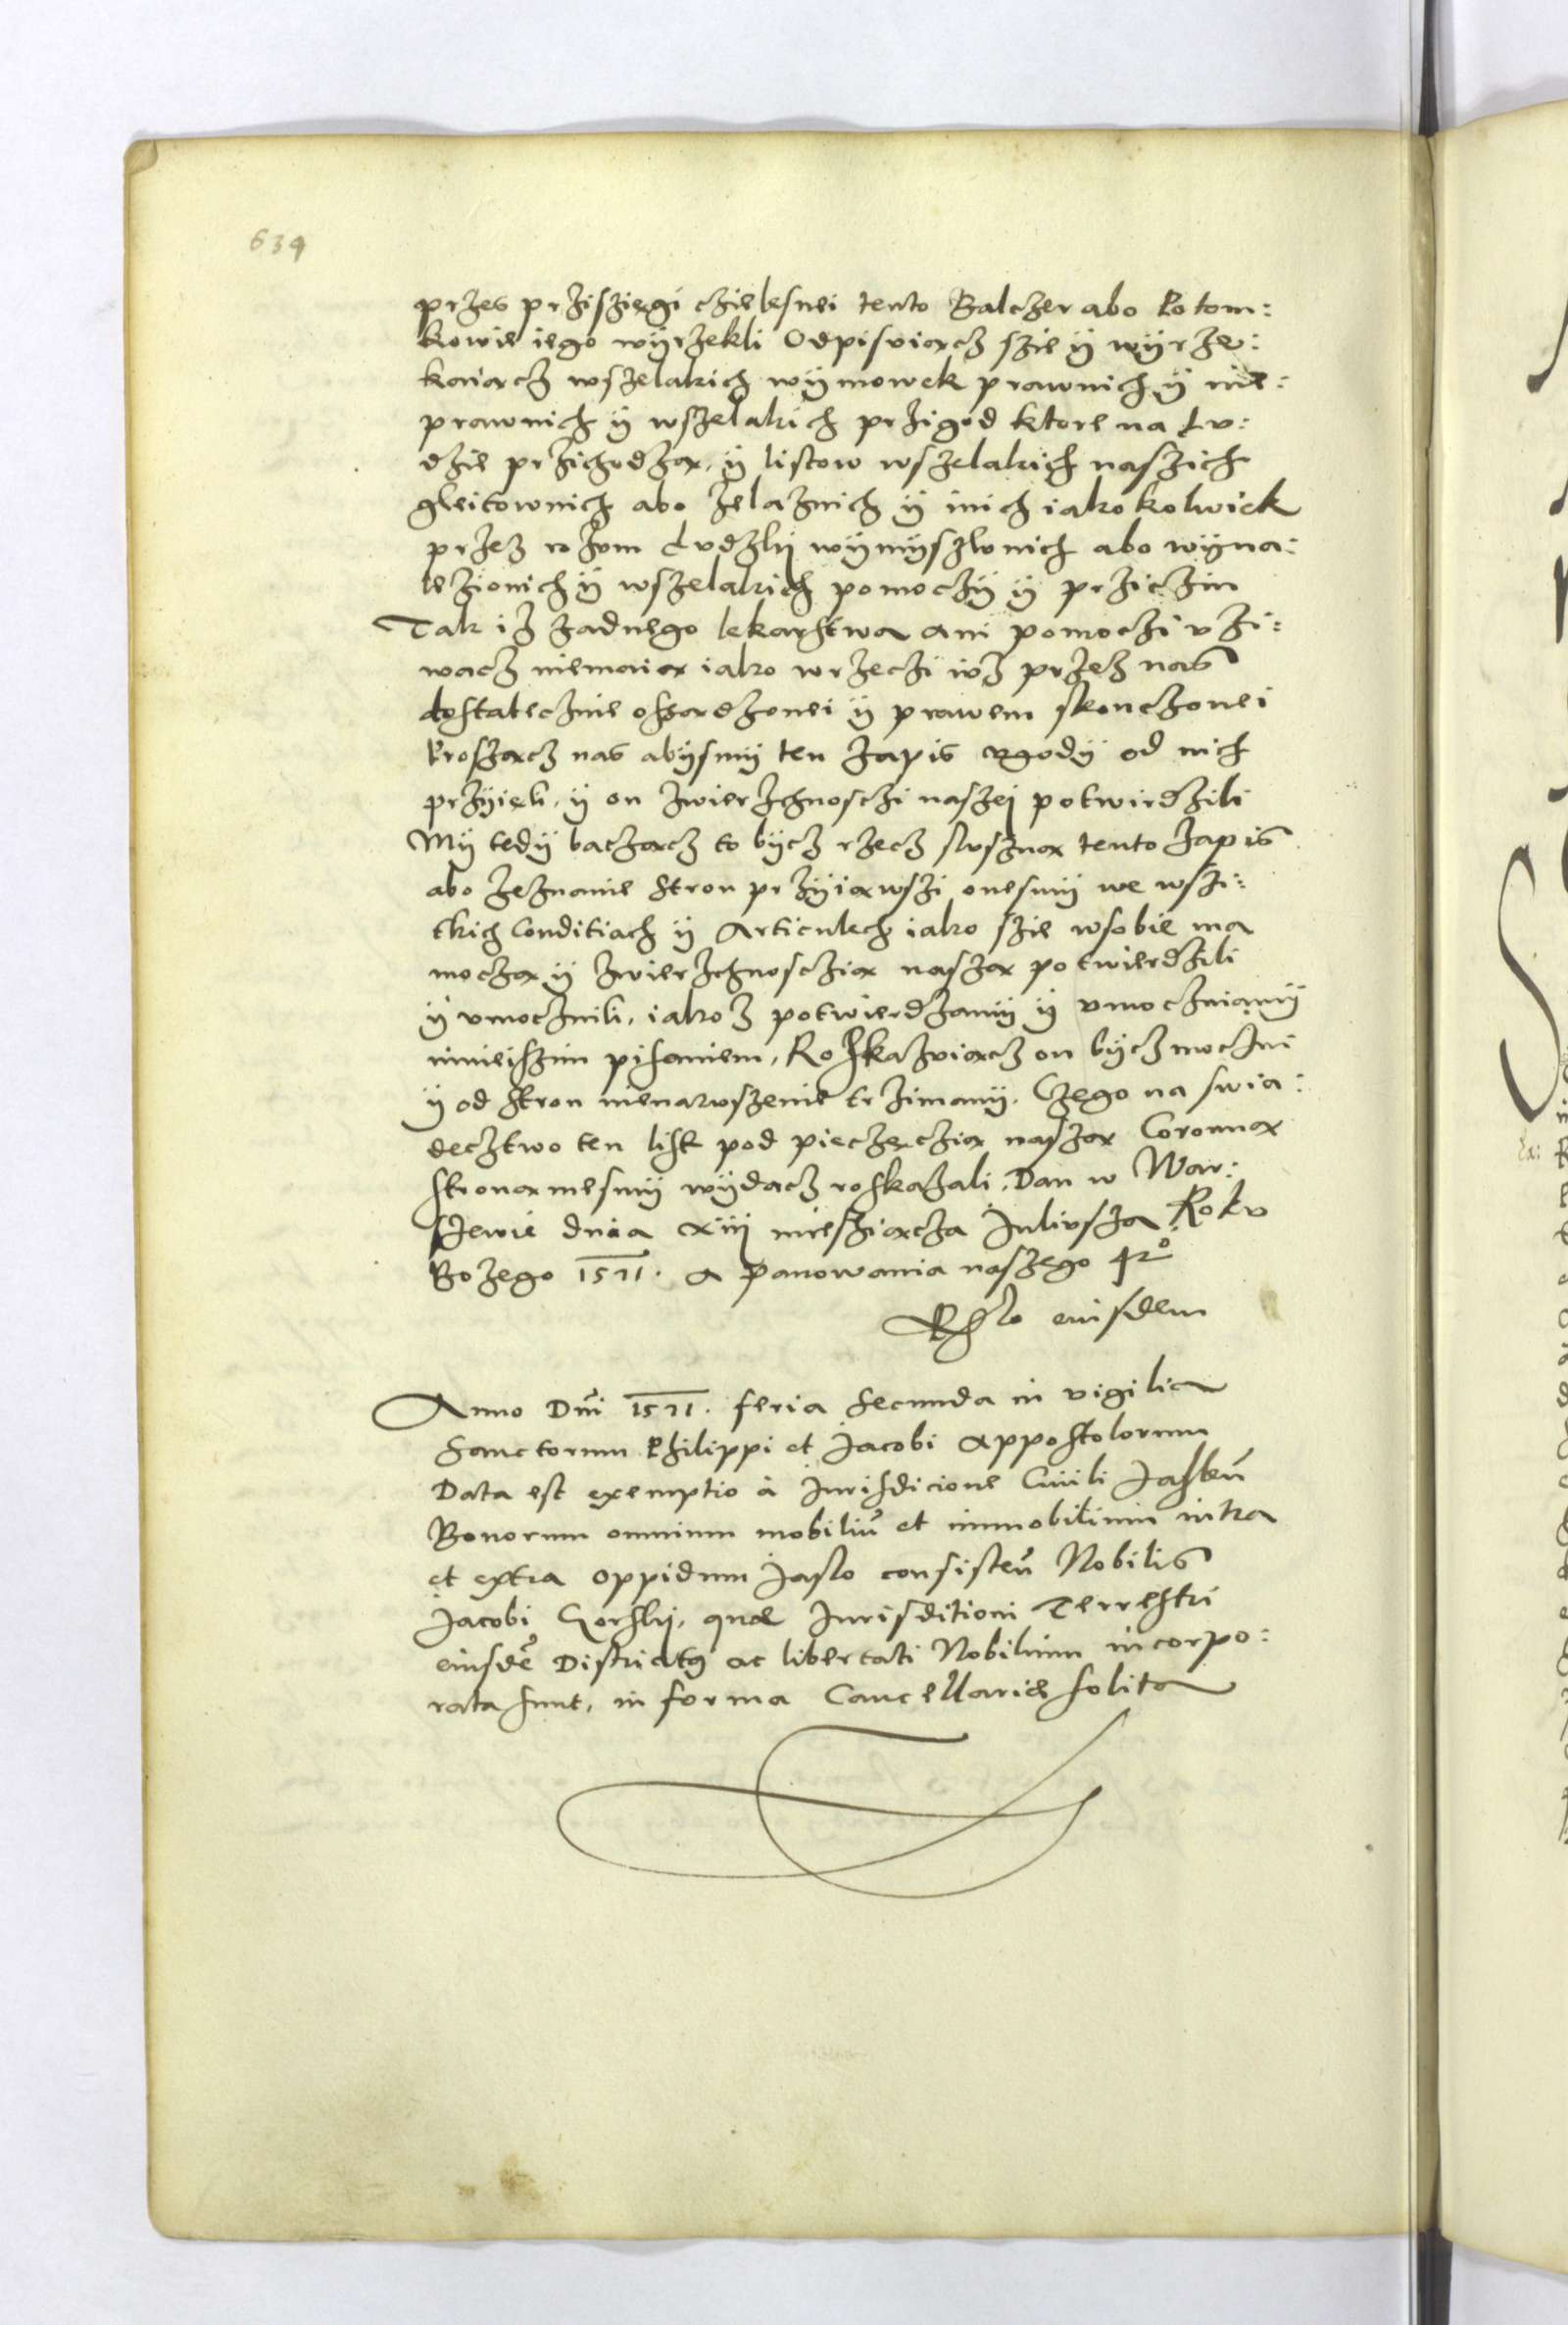 634
przes prziszięgi czielesnei tento Balczer abo Potom:
kowie iego wÿrzekli Odpisuiącz szie ÿ wÿrze:
kaiącz wszelakich wÿmowek prawnich ÿ nie:
prawnich ÿ wszelakich przigod ktore na Lu:
dzie przichodzą, ÿ listow wszelakich naszich
gleitownich abo żelaznich ÿ inich iakokolwiek
przez rozum Ludzkÿ wÿmÿszlonich abo wÿna:
lezionich ÿ wszelakich pomoczÿ ÿ przitczin
Tak iz zadnego lekarstwa ani pomoczi vzi:
wacz niemaią iako wrzeczi iuz przez nas
dostatecznie ossądzonei ÿ prawem skonczonei
Prosząc nas abÿsmÿ ten zapis vgodÿ od nich
przÿięli, ÿ on zwierzchnosczi naszej potwirdzili
Mÿ tedÿ baczącz to bÿcz rzecz sluszną tento zapis
abo zeznanie stron przÿiąwszi onesmÿ we wszi:
tkich Conditiach ÿ Articulech iako szie wsobie ma
moczą ÿ zwierzchnosczią naszą potwierdzili
ÿ vmocznili, iakoz potwierdzamÿ ÿ vmoczniamÿ
ninieiszim pisaniem, Roskazuiącz on bÿcz moczni
ÿ od stron nienarvszenie trzimanÿ. Czego na swia:
decztwo ten list pod pieczęczią naszą Coronną
stronamesmÿ wÿdacz roskazali. Dan w War:
szewie dnia xiij miesziącza Juliusza Roku
Bozego 1571. a panowania naszego 42º
Rslo eiusdem
Anno Dni 1571. feria secunda in vigilia
sanctorum Philippi et Jacobi Appostolorum
Data est exemptio à Jurisdicione Ciuili Jaslen̄
Bonorum omnium mobiliū et immobilium intra
et extra oppidum Jaslo consisten̄ Nobilis
Jacobi Gorskÿ, quae Jurisditioni Terrestri
eiusdē Districtus ac libertati Nobilium incorpo:
rata sunt, in forma Cancellariae solita